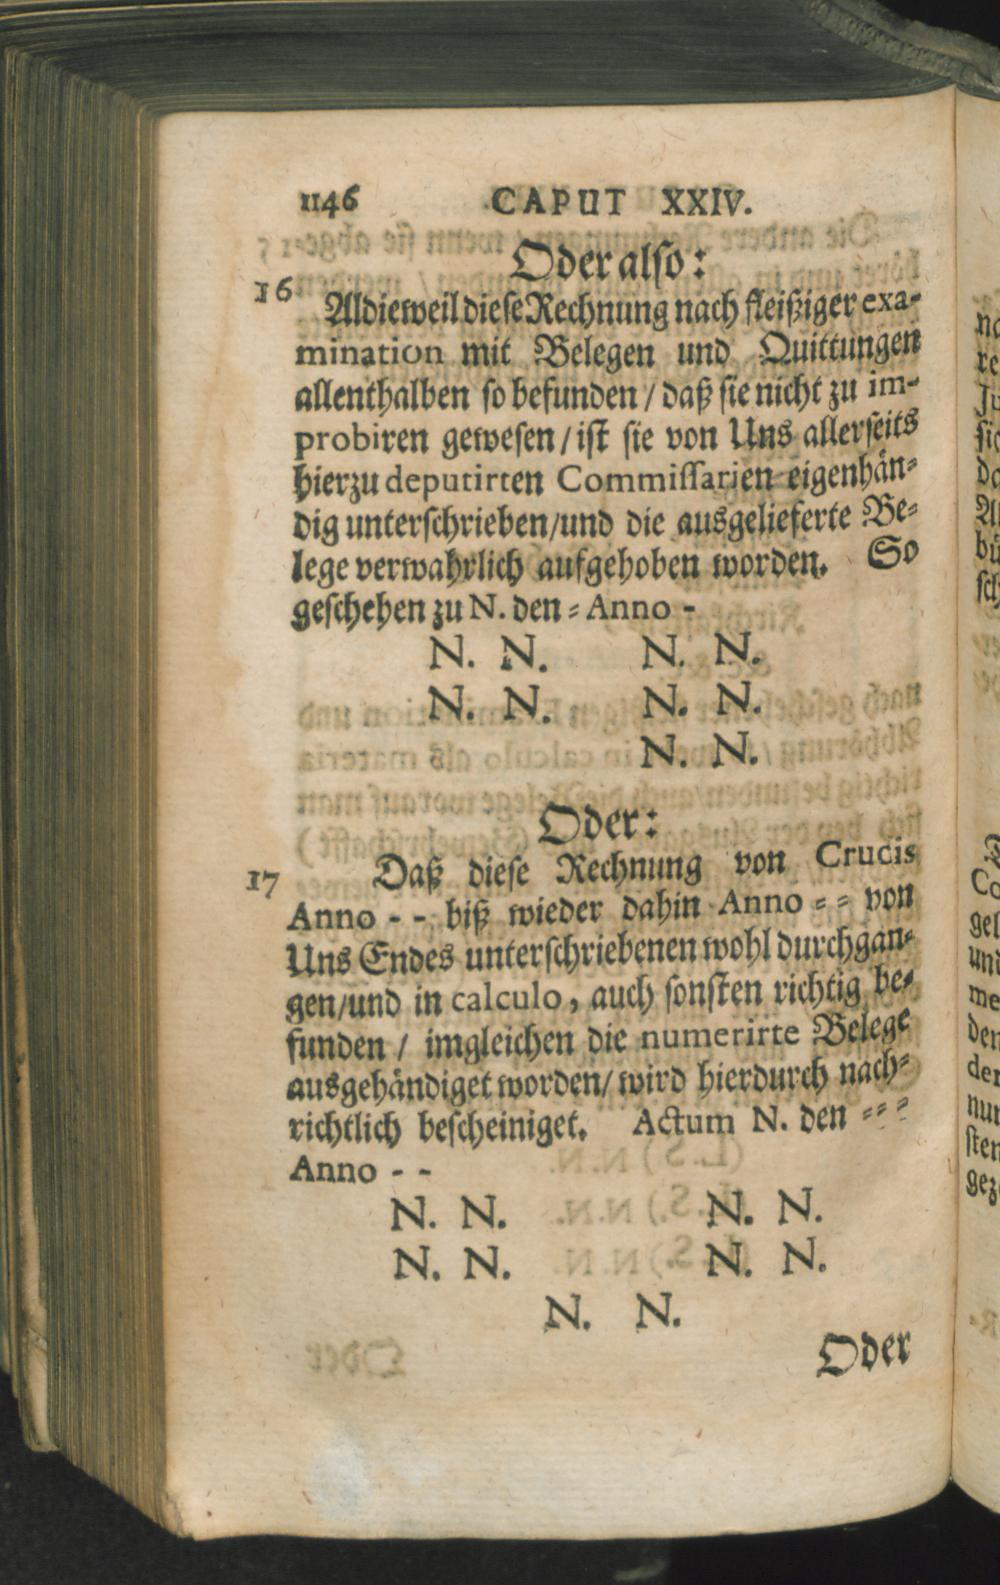 1146 CAPUT XXIV.
Oder also:
16 Aldieweil diese Rechnung nach fleißiger exa-
mination mit Belegen und Quittungen
allenthalben so befunden / daß sie nicht zu im-
probiren gewesen / ist sie von Uns allerseits
hierzu deputirten Commissarien eigenhän-
dig unterschrieben/und die ausgelieferte Be-
lege verwahrlich aufgehoben worden. So
geschehen zu N. den = Anno -
N. N. N. N.
N. N. N. N.
N. N.
Oder:
17 Daß diese Rechnung von Crucis
Anno - - biß wieder dahin Anno = = von
Uns Endes unterschriebenen wohl durchgan-
gen/und in calculo, auch sonsten richtig be-
funden / imgleichen die numerirte Belege
ausgehändiget worden/ wird hierdurch nach-
richtlich bescheiniget. Actum N. den = = =
Anno - -
N. N. N. N.
N. N. N. N.
N. N.
Oder